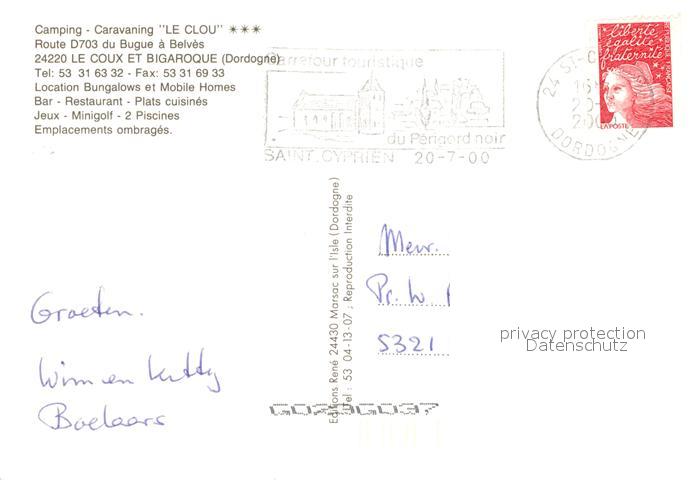 Camping - Caravaning "LE CLOU" ✶✶✶
Route D703 du Bugue à Belvès
24220 LE COUX ET BIGAROQUE (Dordogne)
Tel: 53 31 63 32 - Fax: 53 31 69 33
Location Bungalows et Mobile Homes
Bar - Restaurant - Plats cuisinés
Jeux - Minigolf - 2 Piscines
Emplacements ombragés.
Carrefour touristique
du Périgord noir
SAINT.CYPRIEN 20-7-00
24 ST-C
16
20-
20
DORDOGNE
liberté
égalité
fraternité
RÉPUBLIQUE FRANÇAISE
LA POSTE
Editions René 24430 Marsac sur l'Isle (Dordogne)
Tel : 53 04-13-07 ; Reproduction Interdite
Groeten.
Wim en Ketty
Boelaars
Mevr.
Pr. W.
5321
privacy protection
Datenschutz